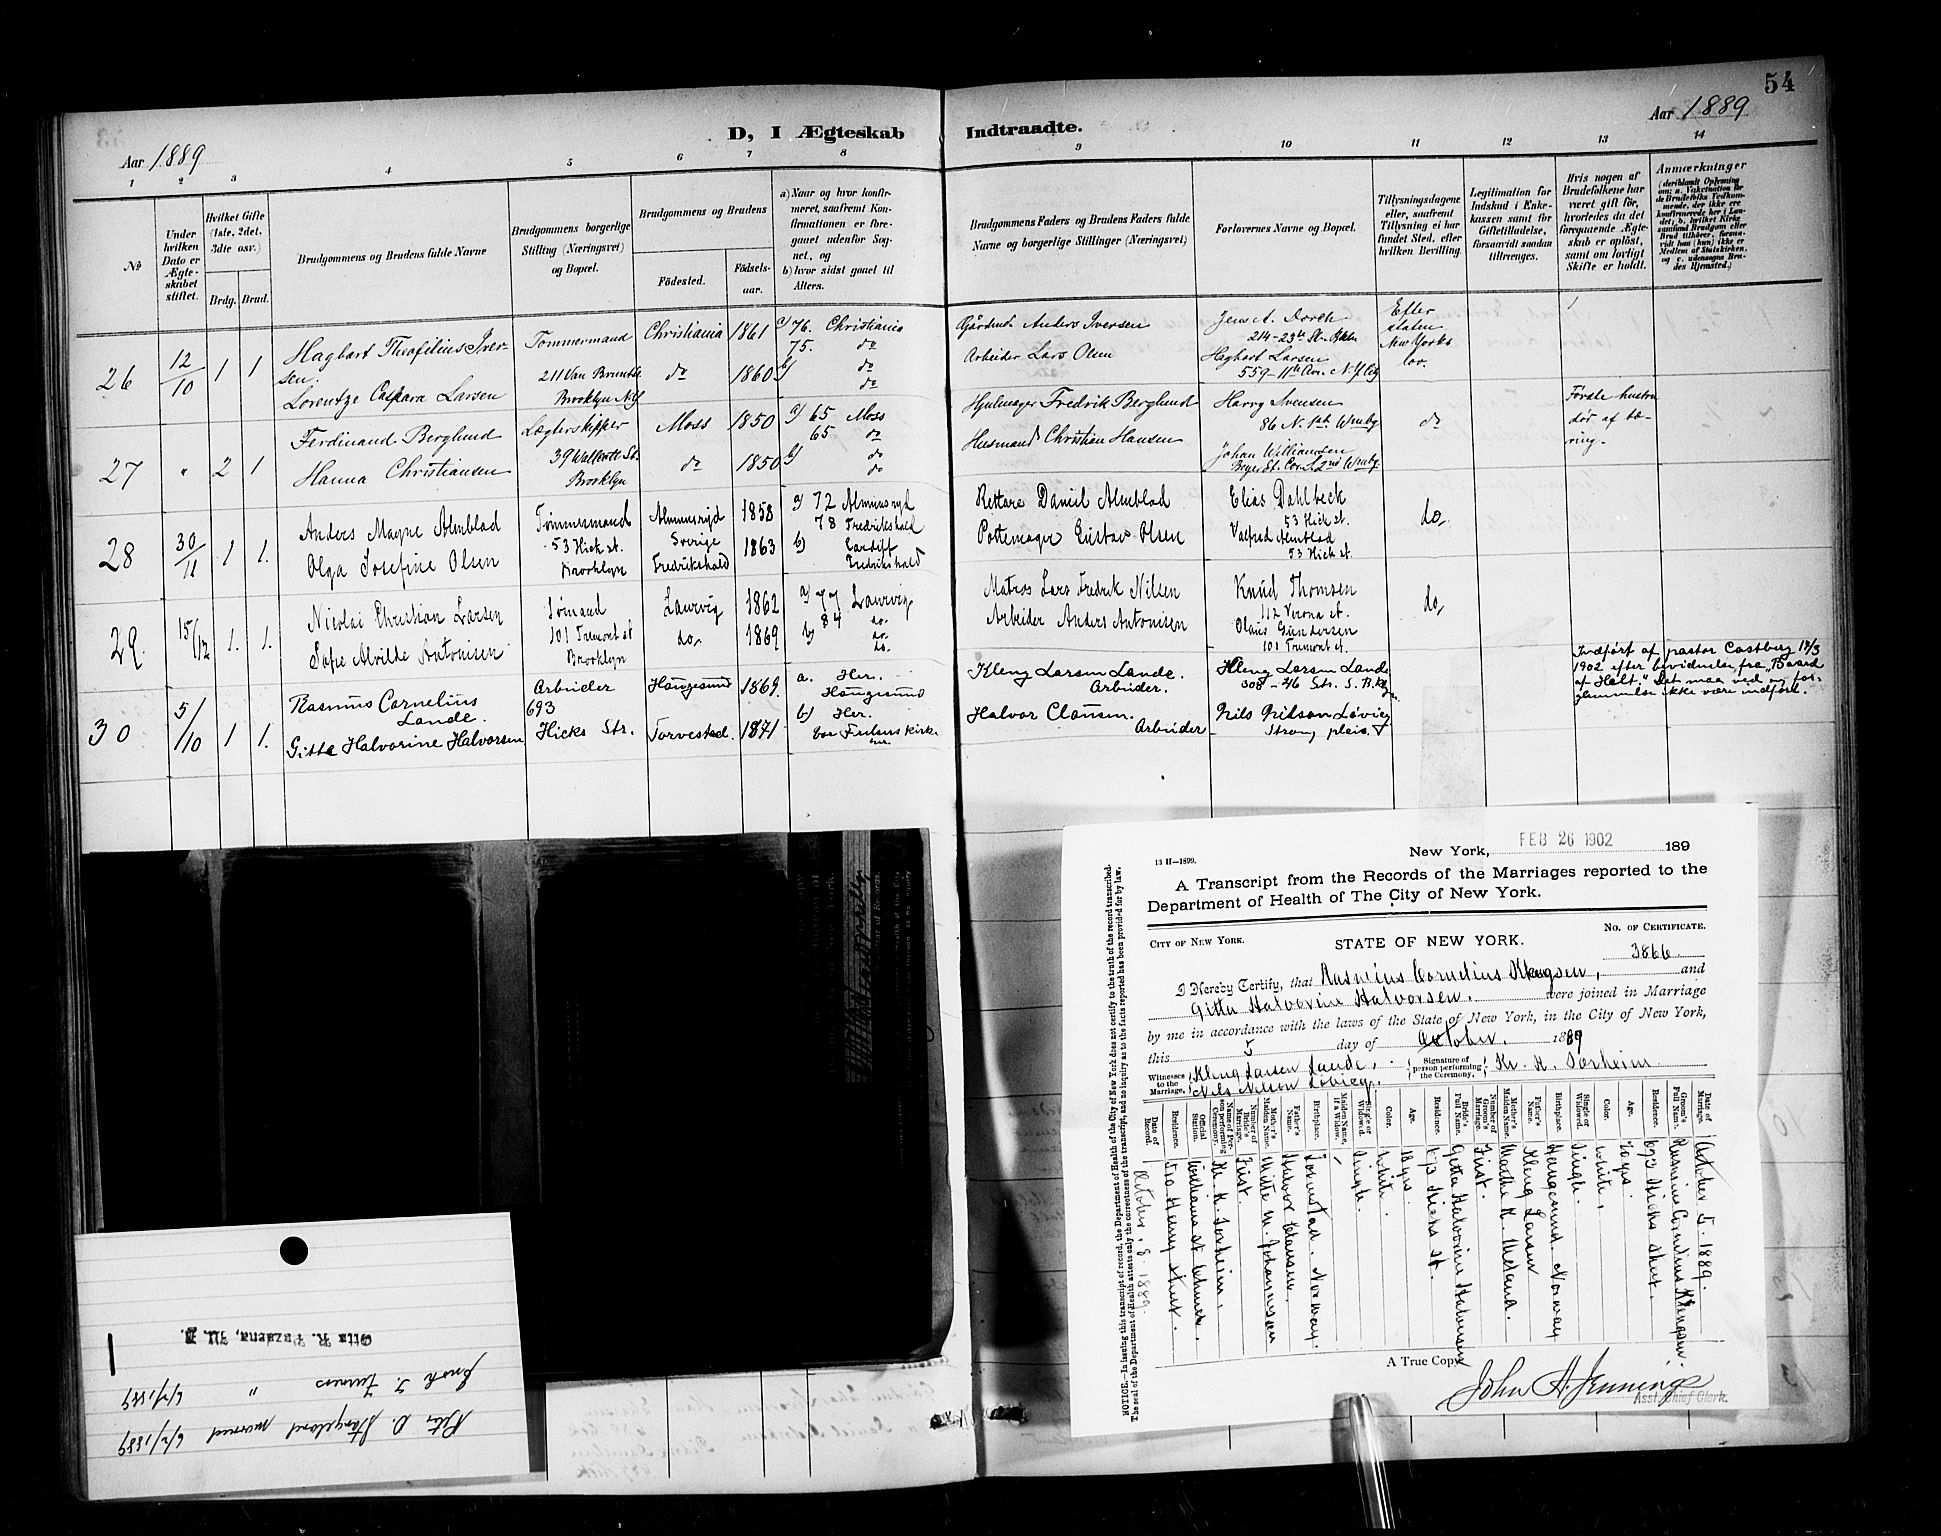 54
Aar 1889
D, I Ægteskab
Indtraadte.
Aar 1889
1 2 3 4 5 6 7 8
9 10 11 12 13 14
No
Under hvilken Dato er Ægteskabet stiftet.
Hvilket Gifte (1ste, 2det, 3die osv.)
Brdg. Brud.
Brudgommens og Brudens fulde Navne
Brudgommens borgerlige Stilling (Næringsvei) og Bopæl.
Brudgommens og Brudens
Fødested.
Fødselsaar.
a) Naar og hvor konfirmeret, saafremt Konfirmationen er foregaaet udenfor Sognet, og
b) hvor sidst gaaet til Alters.
Brudgommens Faders og Brudens Faders fulde Navne og borgerlige Stillinger (Næringsvei)
Forlovernes Navne og Bopæl.
Tillysningsdagene eller, saafremt Tillysning ei har fundet Sted, efter hvilken Bevilling.
Legitimation for Indskud i Enkekassen samt for Giftetilladelse, forsaavidt saadan tiltrænges.
Hvis nogen af Brudefolkene har været gift før, hvorledes da det foregaaende Ægteskab er opløst, samt om lovligt Skifte er holdt.
Anmærkninger
26 12/10 1 1
Hagbart Theofilius Iversen.
Lorentze Caspara Larsen
Tømmermand
211 Van Bruntst.
Brooklyn N.Y.
Christiania 1861
do 1860
a) 76. Christiania
75. do
b) do
do
Gårdmd. Anders Iversen
Arbeider Lars Olsen
214-23rd St. Bkln
Hagbart Larsen
559-11th Ave. N.Y. City
Efter
staten
New Yorks
lov.
27 " 2 1
Ferdinand Berglund
Hanna Christiansen
Lægterskipper
Brooklyn
Moss 1850
do 1850
a) 65 Moss
65 do
b) do
do
Hjulmager Fredrik Berglund
Husmand Christian Hansen
Harry Svensen
86 N. 1st Wmbg
Johan Williamsen
do
Første hustru
død af tæ-
ring.
28 30/11 1 1.
Anders Magne Almblad
Olga Josefine Olsen
Tømmermand
53 Hick st.
Brooklyn
Almunsryd
Sverige
Fredrikshald
1858
1863
a) 72 Almunsryd
78 Fredrikshald
b) Cardiff
Fredrikshald
Rettare Daniel Almblad
Pottemager Gustav Olsen
Elias Dahlbeck
53 Hick st.
Valfred Almblad
53 Hick st.
do,
29. 15/12 1. 1.
Nicolai Christian Larsen
Sofie Alvilde Antonisen
Sømand
101 Tremont st
Brooklyn
Laurvig 1862
do, 1869
a) 77 Laurvig
84 do.
b) do.
do.
Matros Lars Fredrik Nilsen
Arbeider Anders Antonisen
Knud Thomsen
112 Verona st.
Olaus Gundersen
101 Tremont st.
do,
30 5/10 1 1.
Rasmus Cornelius
Lande.
Gitta Halvorine Halvorsen
Arbeider
693
Hicks Str.
Haugesund 1869.
Torvestad. 1871
a. Her.
Haugesund
b) Her.
Vor Frelsers kirke
her.
Kleng Larsen Lande
Arbeider.
Halvor Clausen.
Arbeider
Kleng Larsen Lande
308 - 26 Str. S. Bklyn
Nils Nilson Løvieg
Strong place
Indført af pastor Castberg 17/3
1902 efter bevidnelse fra "Board
of Helt." Det maa ved en for-
glemmelse ikke være indført.
Otto R. Pazdena, M. D.
Peter D. Stangeland married 6/2/1889
6/2/1889
New York, FEB 26 1902 189
13 H—1899.
A Transcript from the Records of the Marriages reported to the
Department of Health of The City of New York.
CITY OF NEW YORK.
STATE OF NEW YORK.
NO. OF CERTIFICATE.
3866
I Hereby Certify, that Rasmius Cornelius Klengsen, and
Gitta Halvorine Halvorsen. were joined in Marriage
by me in accordance with the laws of the State of New York, in the City of New York,
this 5 day of October. 1889
Witnesses to the Marriage, Kleng Larsen Lande,
Nils Nelson Lövieg.
Signature of person performing the Ceremony, Kr. K. Sorheim
Date of Marriage. October 5. 1889.
Groom's Full Name. Rasmius Cornelius Klengsen.
Residence. 693 Hicks Street.
Age. 20 yrs.
Color. White.
Single or Widowed. Single.
Birthplace. Haugesund Norway
Father's Name. Kleng Larsen
Mother's Maiden Name.
Number of Groom's Marriage. First.
Bride's Full Name. Gitta Halvorine Halvorsen
Residence. 693 Hicks St.
Age. 18 yrs.
Color. White.
Single or Widowed. Single.
Maiden Name, if a Widow.
Birthplace. Torvestad. Norway.
Father's Name. Halvor Clausen.
Mother's Maiden Name. Mitte M. Johannesen
Number of Bride's Marriage. First.
Name of Person performing Ceremony. Kr. K. Sorheim.
Official Station.
Residence. Henry Street.
Date of Record. October. 8 1889.
NOTICE.—In issuing this transcript of record, the Department of Health of the City of New York does not certify to the truth of the record transcribed.
The seal of the Department of Health attests only the correctness of the transcript, and no inquiry as to the facts reported has been provided for by law.
A True Copy.
John H. Jennings
Asst. Chief Clerk.